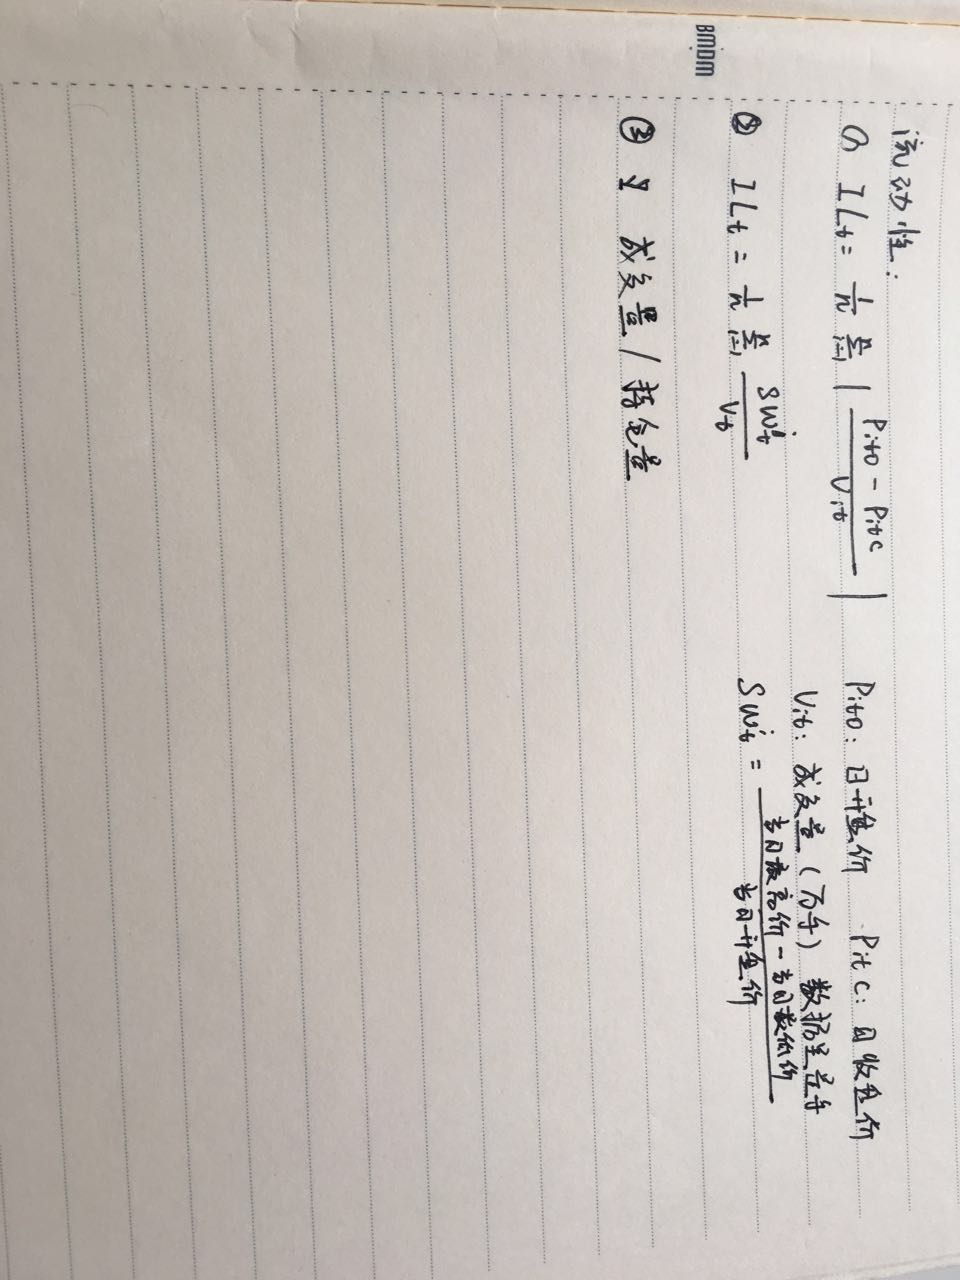 BMDM
流动性:
① ILt = 1/n Σ(i=1→n) | (Pito - Pitc) / Vit |    Pito: 日开盘价    Pitc: 日收盘价
Vit: 成交量 (万手) 数据是
② ILt = 1/n Σ(i=1→n) SWit / Vt    SWit = (当日最高价 - 当日最低价) / 当日开盘价
③ 成交量 / 持仓量